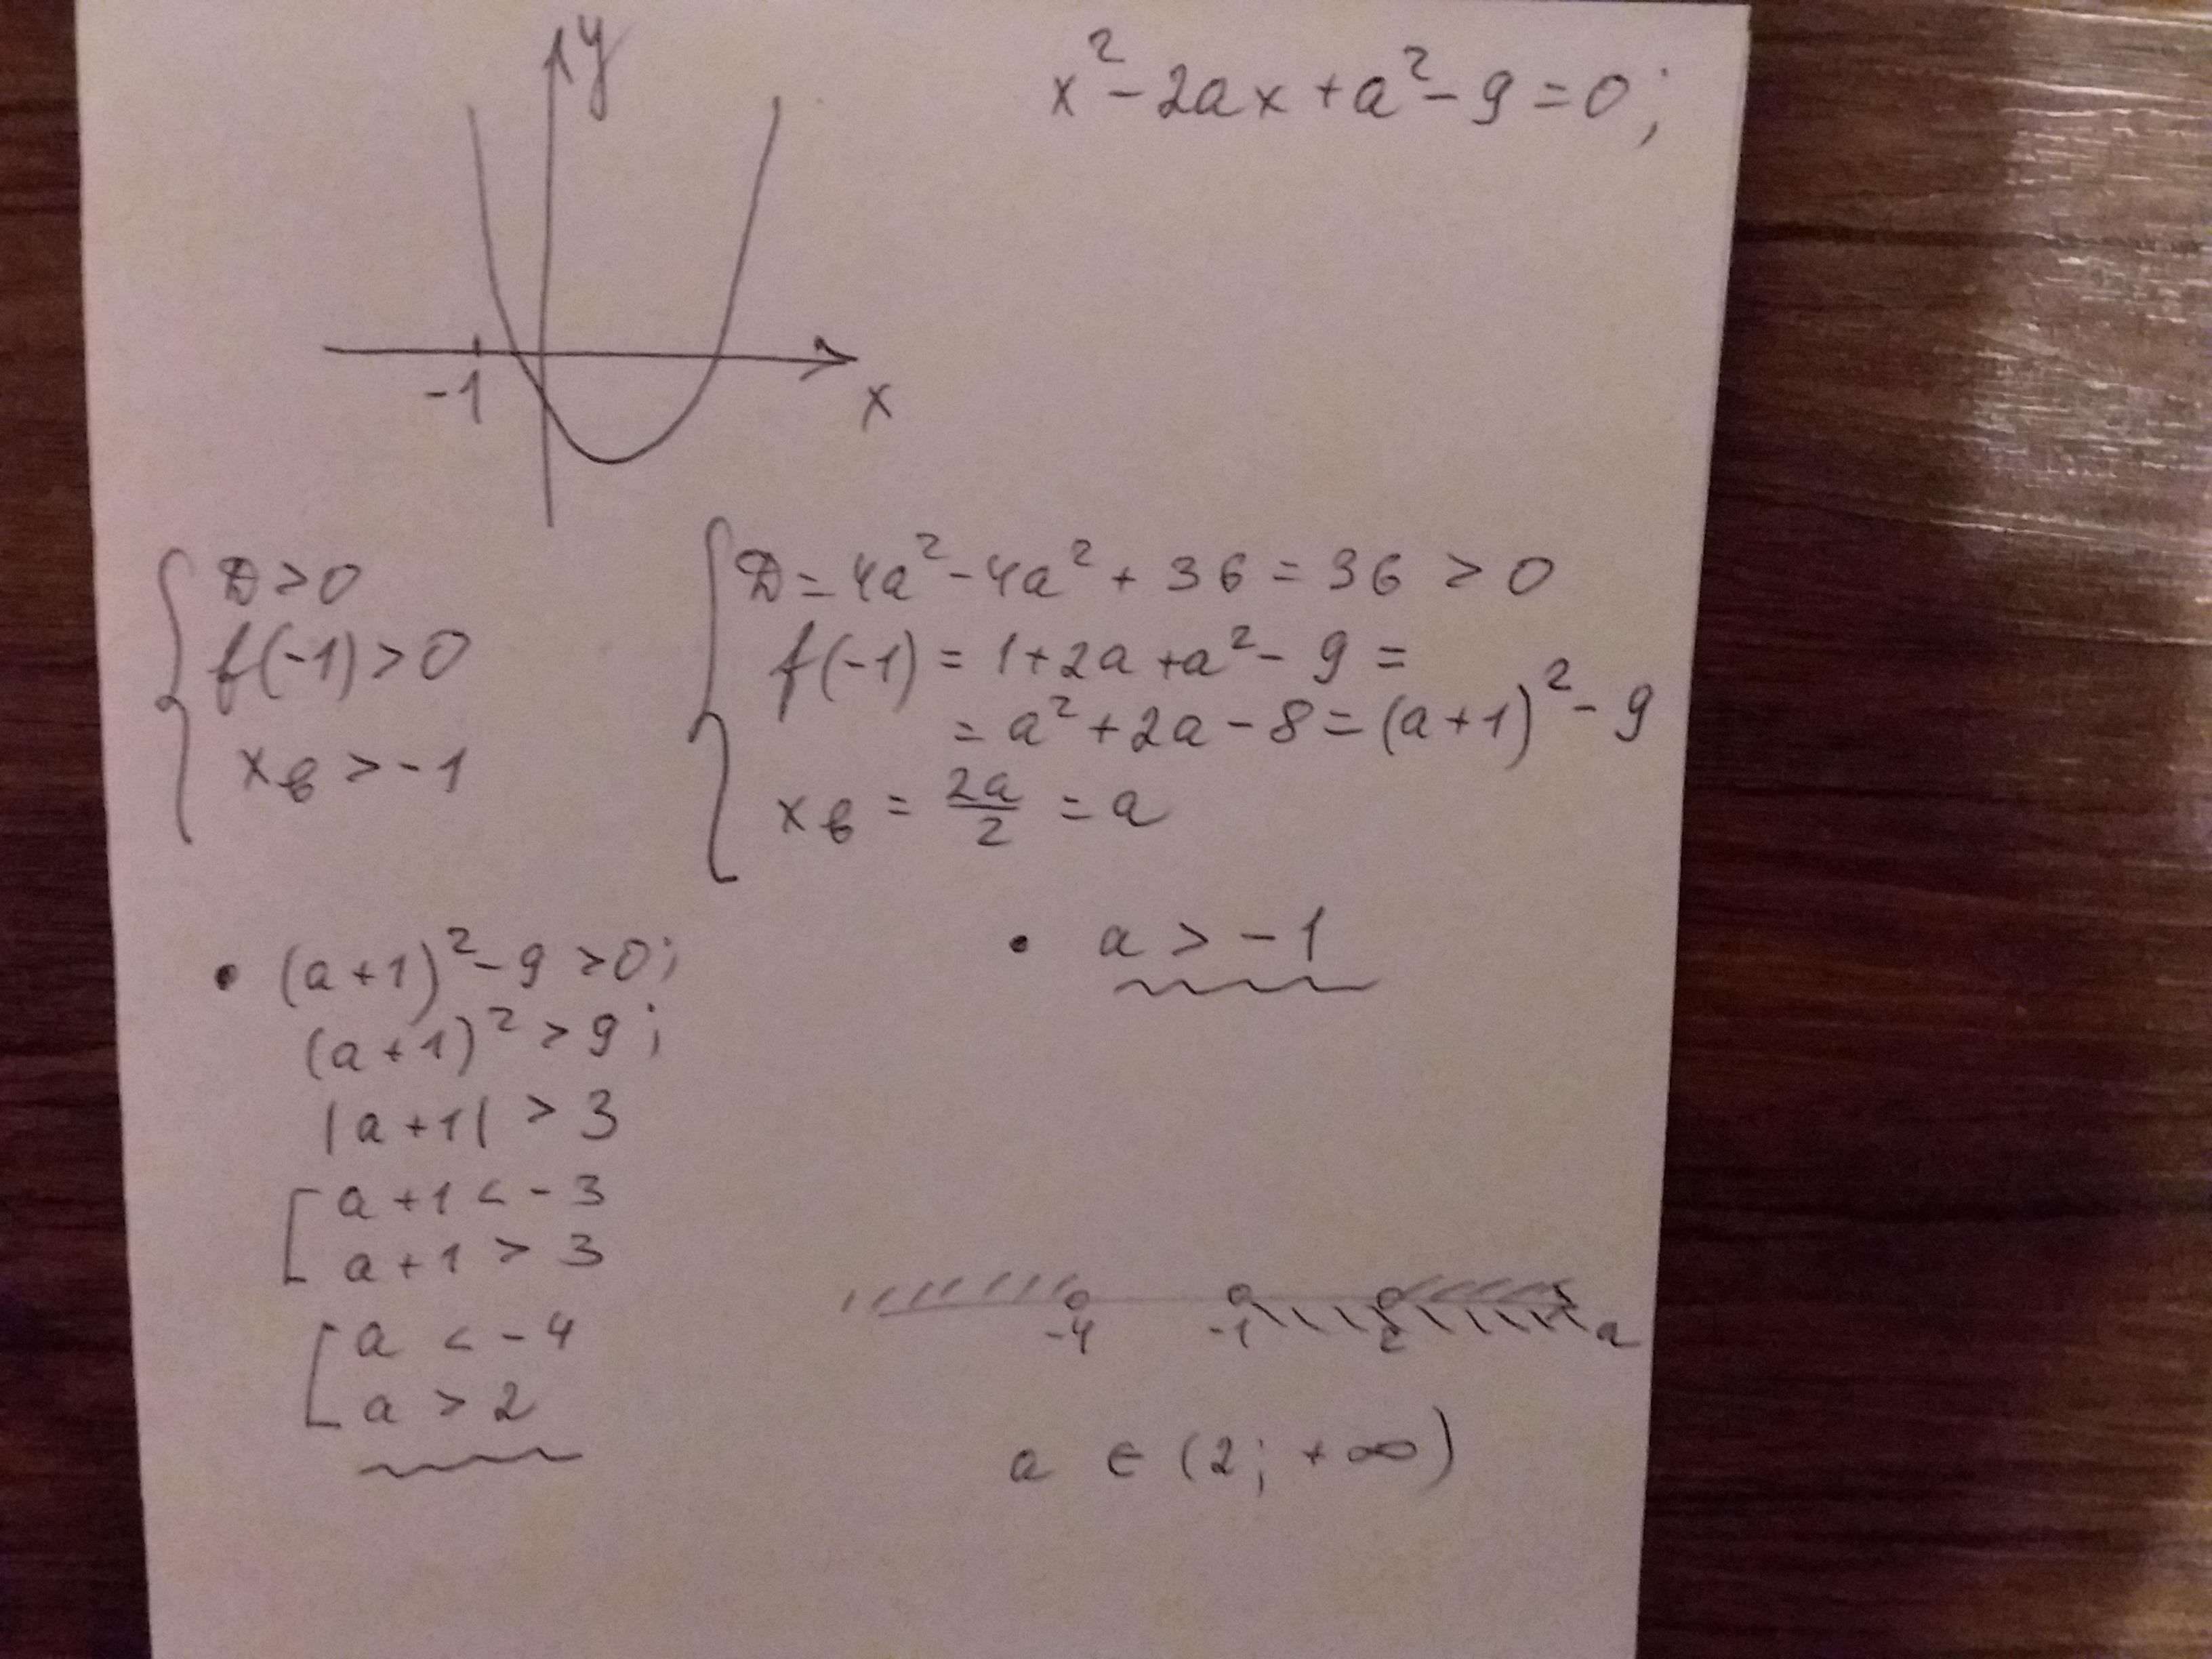 y
x² - 2ax + a² - 9 = 0;
-1
x
D > 0
f(-1) > 0
xв > -1
D = 4a² - 4a² + 36 = 36 > 0
f(-1) = 1 + 2a + a² - 9 =
= a² + 2a - 8 = (a+1)² - 9
xв = 2a/2 = a
• (a+1)² - 9 > 0;
(a+1)² > 9;
|a+1| > 3
[ a + 1 < -3
a + 1 > 3
[ a < -4
a > 2
• a > -1
-4 -1 2 a
a ∈ (2; +∞)